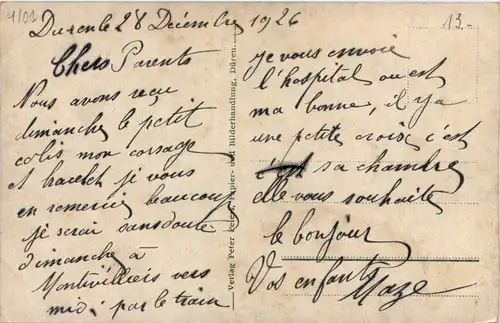 4/01
Duren le 28 Décembre 1926
13.-
Chers Parents
Nous avons reçu
dimanche le petit
colis mon corsage
et bracelet je vous
en remercie beaucoup
je serai sans doute
dimanche à
Montivilliers vers
midi par le train
Verlag Peter Peters, Papier- und Bilderhandlung, Düren.
je vous envoie
l'hospital ou est
ma bonne, il y a
une petite croix c'est
sa chambre
elle vous souhaite
le bonjour
Vos enfants
Maze